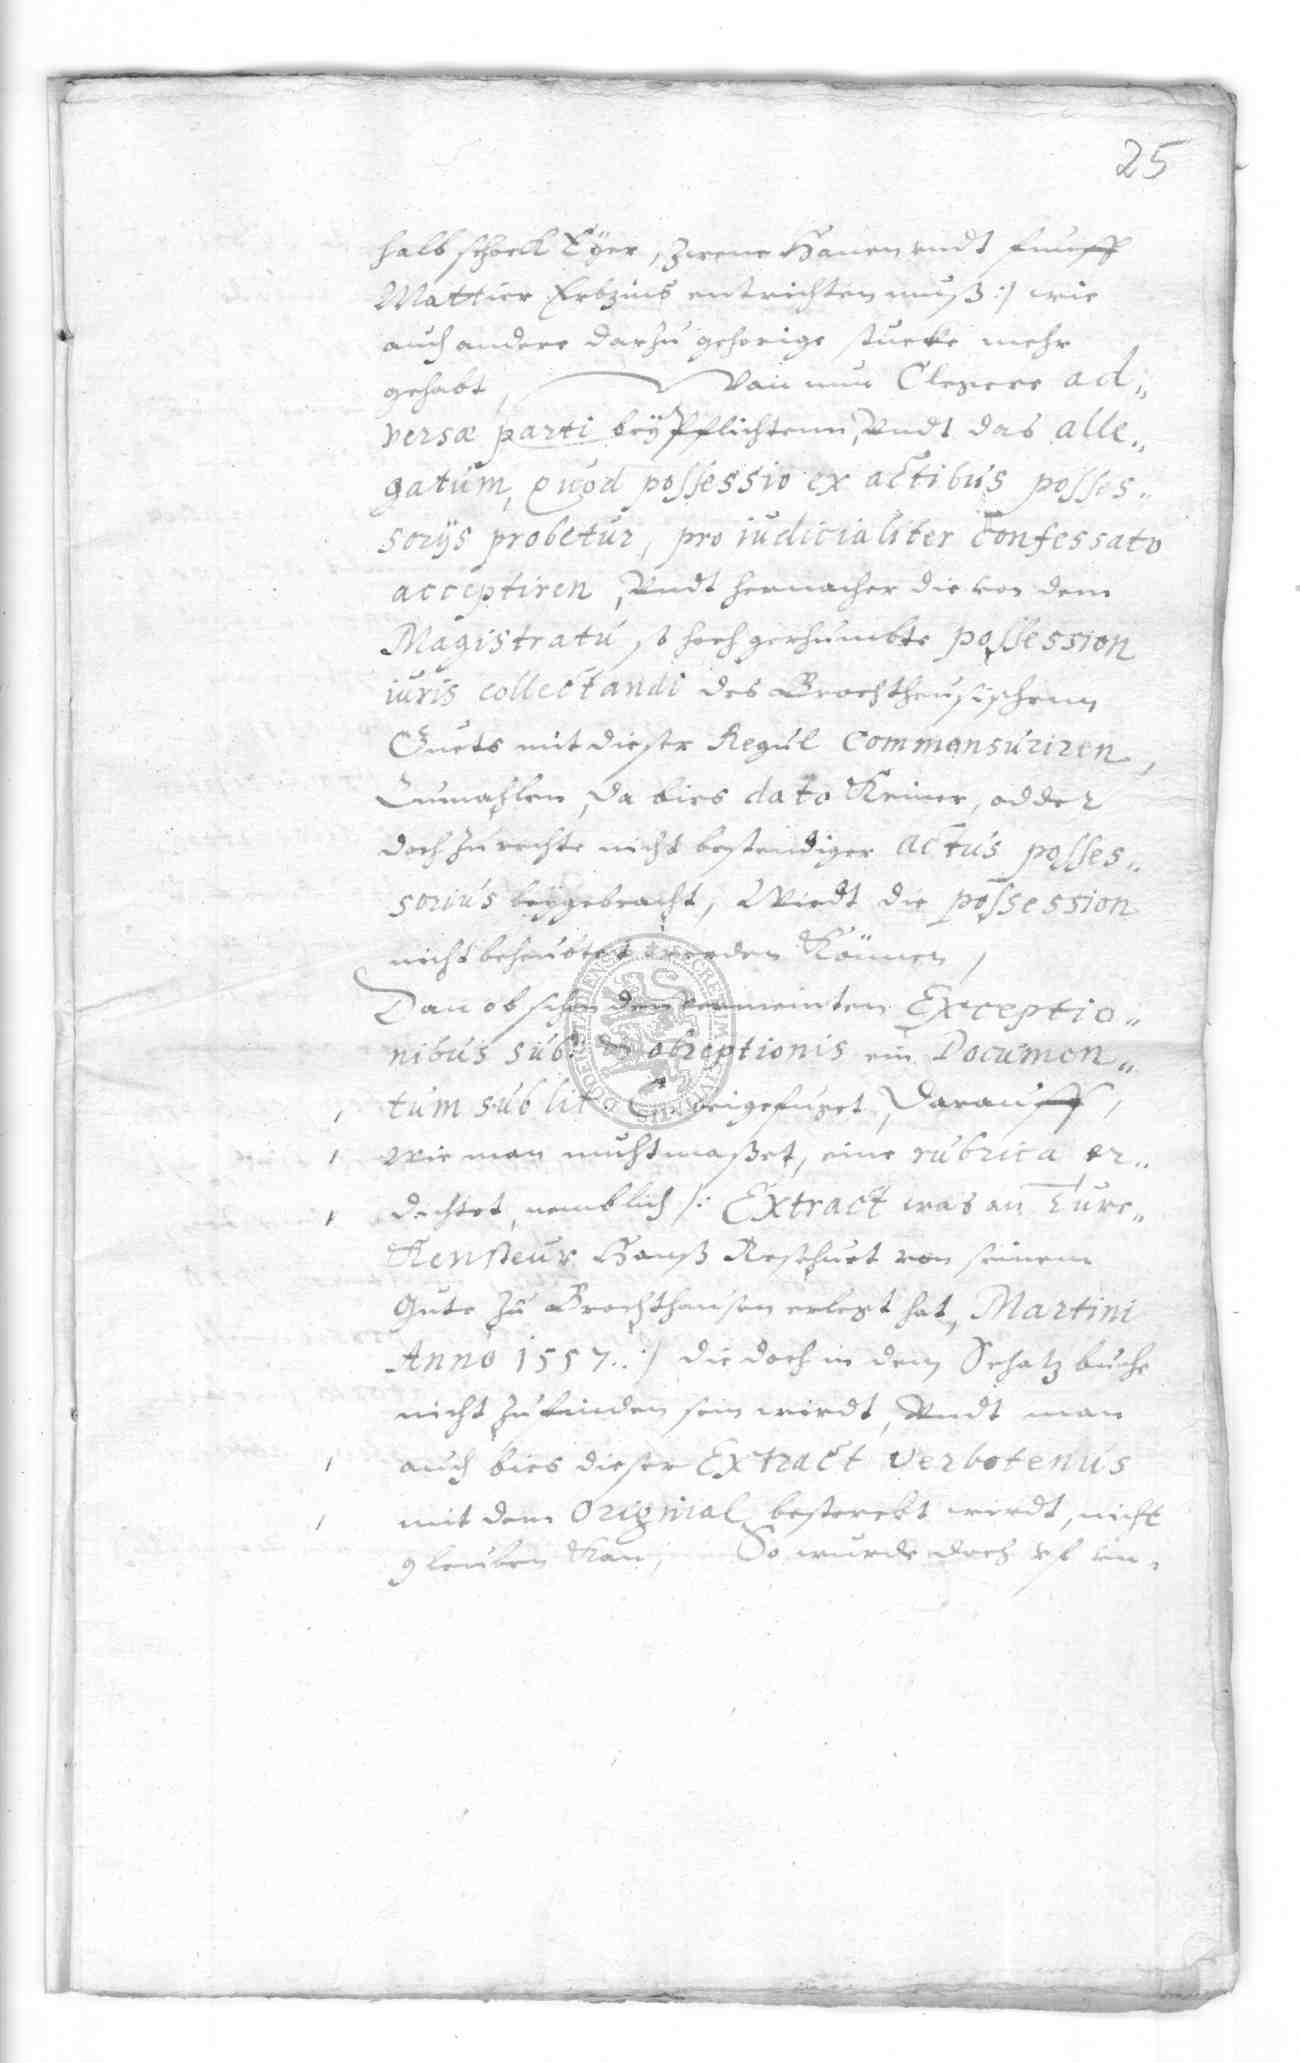 25
halb schock Eÿer, zweene Hanen undt funff
Mattier Erbzins entrichten muß :/ wie
auch andere darzu gehorige stucke mehr
gehabt, Wan nun Clegere ad„
versæ parti beÿpflichtenn, Undt das alle„
gatum, quod possessio ex actibus posses„
sorijs probetur, pro iudicialiter confessato
acceptiren, Undt hernacher die von dem
Magistratu so hoch gerhumbte possession
iuris collectandi des Brochtheusischenn
Guets mit dieser Regul commensuriren,
Zumahlen, da bies dato Keiner, odder
doch zu rechte nicht bestendiger actus posses„
sorius beÿgebracht, Wirdt die possession
nicht beheubtet werden Können,
Dan ob schon den vermeinten Exceptio„
nibus sub: et obreptionis ein Documen„
tum sub lit. C. beigefuget, darauff,
wie man muhtmaßet, eine rubrica er„
dichtet, nemblich /: Extract was an Turc„
Kensteur Hanß Reschuet von seinem
Gute zu Brochthausen erlegt hat, Martini
Anno 1557. :/ die doch in dem Schatzbuche
nicht zu finden sein wirdt, Undt man
auch bies dieser Extract verbotenus
mit dem Original bestercket wirdt, nicht
gleuben Kan, So wurde doch